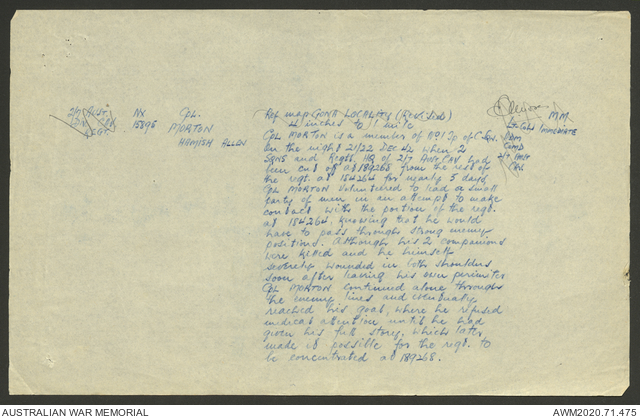 2/7 AUST NX Cpl.
15896 MORTON
REGT HAMISH ALLEN
Ref map GONA LOCALITY (Revised)
4 inches to 1 mile
Cpl MORTON is a member of No 1 Tp of C Sqn.
On the night 21/22 DEC 42 when 2
Sqns and Regtl HQ of 2/7 Aust Cav had
been cut off at 189268 from the rest of
the regt. at 184264 for nearly 5 days
Cpl MORTON volunteered to lead a small
party of men in an attempt to make
contact with the portion of the regt.
at 184264, knowing that he would
have to pass through strong enemy
positions. Although his 2 companions
were killed and he himself
severely wounded in both shoulders
soon after leaving his own perimeter
Cpl MORTON continued alone through
the enemy lines and eventually
reached his goal, where he refused
medical attention until he had
given his full story, which later
made it possible for the regt. to
be concentrated at 189268.
MM
Lt Col IMMEDIATE
Adm
Comd
2/7 Aust
Cav
AUSTRALIAN WAR MEMORIAL
AWM2020.71.475